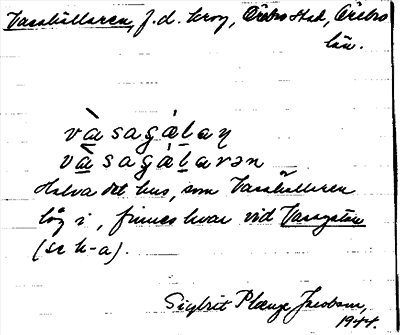 Vasakällaren, f.d. krog, Örebro stad, Örebro
län.
vàsagál̲aņ
vàsagál̲arən
Halva det hus, som Vasakällaren
låg i, finnes kvar vid Vasagatan
(se k-a).
Sigbrit Plænge Jacobson,
1944.